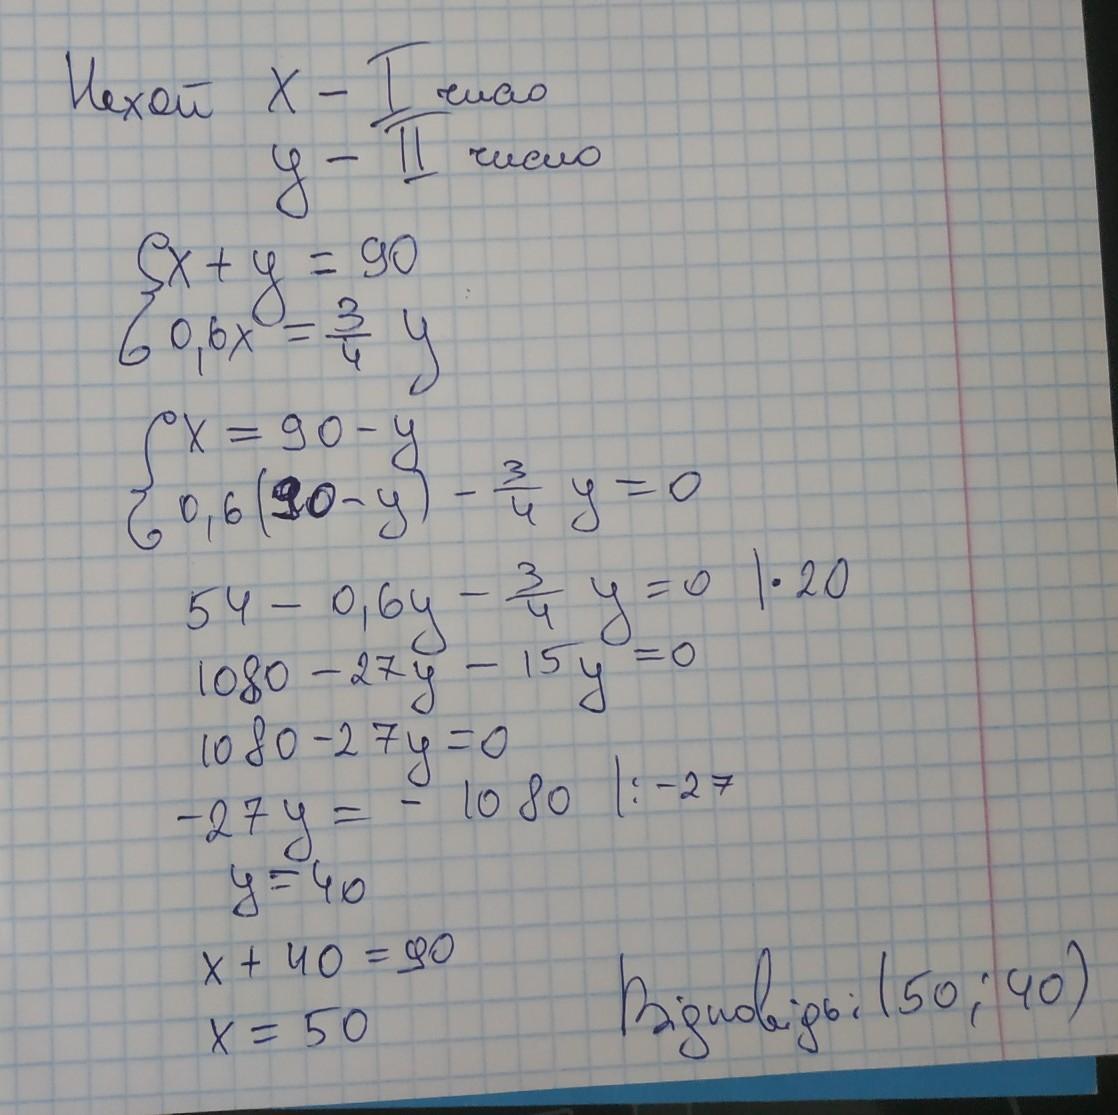 Нехай x – I число
y – II число
{x + y = 90
0,6x = 3/4 y
{x = 90 - y
0,6(90 - y) - 3/4 y = 0
54 - 0,6y - 3/4 y = 0 |·20
1080 - 27y - 15y = 0
1080 - 27y = 0
-27y = - 1080 |: -27
y = 40
x + 40 = 90
x = 50
Відповідь: (50; 40)